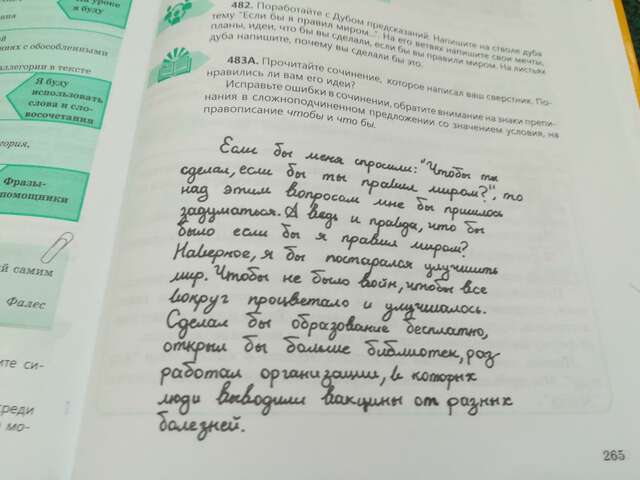 на уроке
я буду
ниях с обособленными
ллегории в тексте
Я буду
использовать
слова и сло-
восочетания
Фразы-
помощники
й самим
Фалес
ите си-
реди
мо-
482. Поработайте с Дубом предсказаний. Напишите на стволе дуба
тему "Если бы я правил миром...". На его ветвях напишите свои мечты,
планы, идеи, что бы вы сделали, если бы вы правили миром. На листьях
дуба напишите, почему вы сделали бы это.
483А. Прочитайте сочинение, которое написал ваш сверстник. По-
нравились ли вам его идеи?
Исправьте ошибки в сочинении, обратите внимание на знаки препи-
нания в сложноподчиненном предложении со значением условия, на
правописание чтобы и что бы.
Если бы меня спросили: "Чтобы ты
сделал, если бы ты правил миром?", то
над этим вопросом мне бы пришлось
задуматься. А ведь и правда, что бы
было если бы я правил миром?
Наверное, я бы постарался улучшить
мир. Чтобы не было войн, чтобы все
вокруг процветало и улучшалось.
Сделал бы образование бесплатно,
открыл бы больше библиотек, раз
работал организации, в которых
люди выводили вакцины от разных
болезней.
265